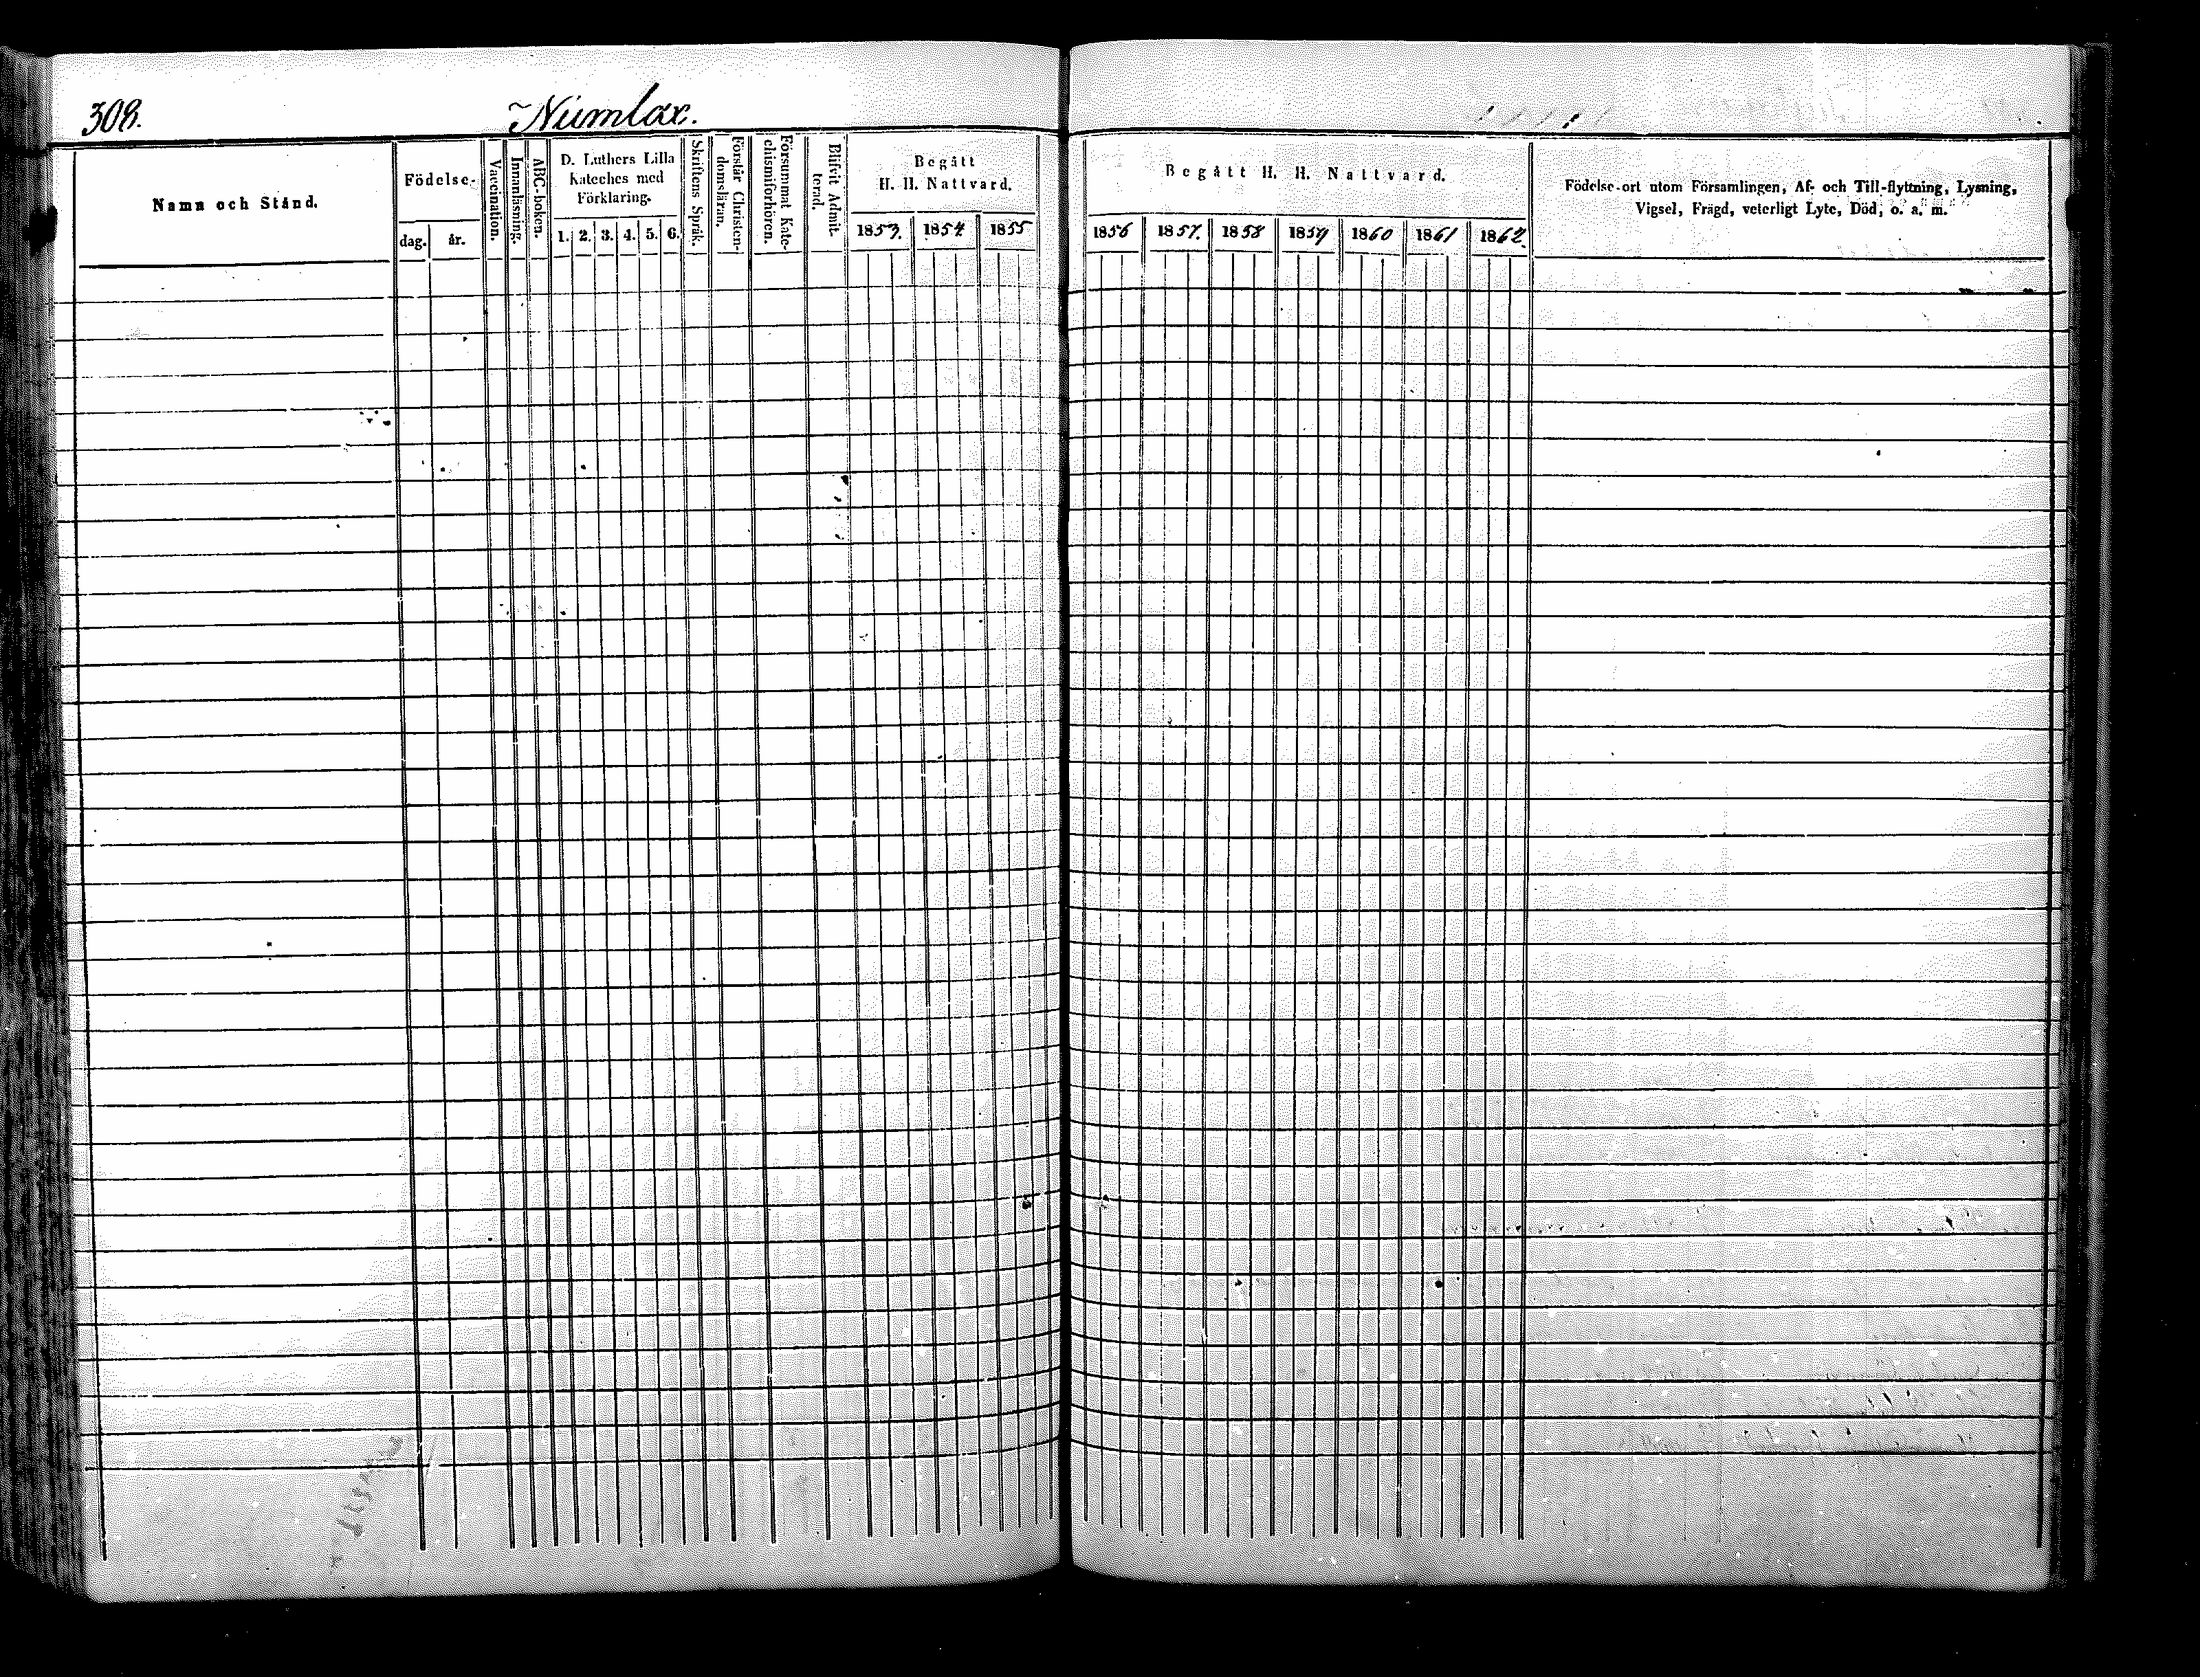 308.
Numlax.
Namn och Stånd.
Födelse-
dag.
år.
Vaccination.
Innanläsning.
ABC-boken.
D. Luthers Lilla
Kateches med
Förklaring.
1. 2. 3. 4. 5. 6.
Skriftens Språk.
Förstår Christen-
domsläran.
Försummat Kate-
chismiförhören.
Blifvit Admit-
terad.
Begått
H. H. Nattvard.
1853. 1854 1855
Begått H. H. Nattvard.
1856 1857. 1858 1859 1860 1861 1862.
Födelse-ort utom Församlingen, Af- och Till-flyttning, Lysning,
Vigsel, Frägd, veterligt Lyte, Död, o. a. m.